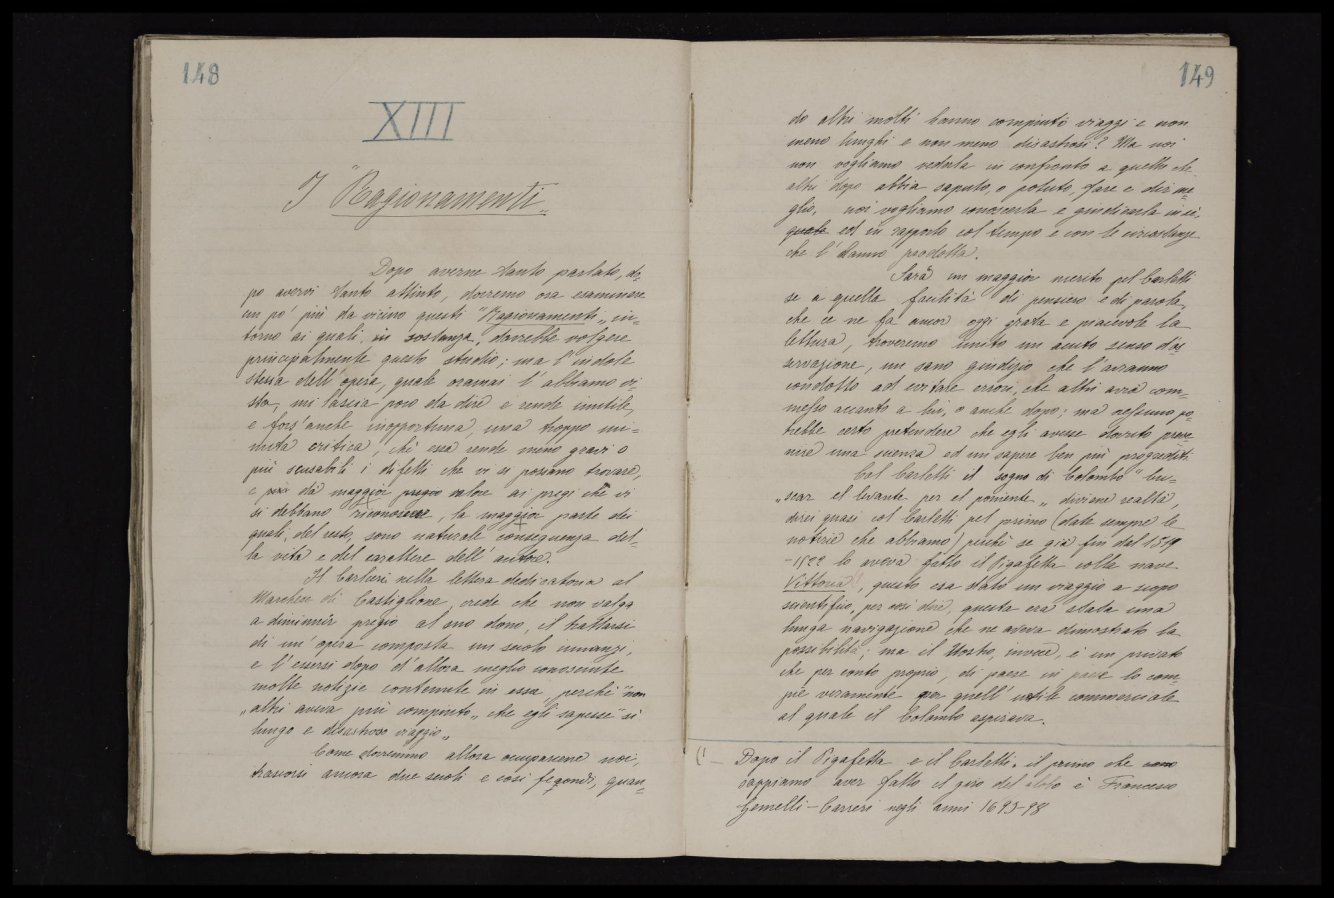 148
XIII
I "Ragionamenti„
Dopo averne tanto parlato, do-
po avervi tanto attinto, dovremo ora esaminare
un po' più da vicino questi "Ragionamenti„ in-
torno ai quali, in sostanza, dovrebbe volgere
principalmente questo studio; ma l'indole
stessa dell'opera, quale oramai l'abbiamo vi-
sta, mi lascia poco da dire e rende inutile,
e fors'anche inopportuna, una troppo mi-
nuta critica, chè essa rende meno gravi o
più scusabili i difetti che vi si possano trovare,
e dà maggior valore ai pregi che vi
si debbano riconoscere, la maggior parte dei
quali, del resto, sono naturale conseguenza del-
la vita e del carattere dell'autore.
Il Carlieri nella lettera dedicatoria al
Marchese di Castiglione, crede che non valga
a diminuir pregio al suo dono, il trattarsi
di un'opera composta un secolo innanzi,
e l'essersi dopo d'allora meglio conosciute
molte notizie contenute in essa, perchè "non
„altri aveva più compiuto„ che egli sapesse "sì
lungo e disastroso viaggio„
Come dovremmo allora occuparcene noi,
trascorsi ancora due secoli e così fecondi, quan-
149
do altri molti hanno compiuto viaggi e non
meno lunghi e non meno disastrosi? Ma noi
non vogliamo vederla in confronto a quello che
altri dopo abbia saputo, o potuto, fare e dir me-
glio, noi vogliamo conoscerla e giudicarla in sè,
quale ed in rapporto col tempo e con le circostanze
che l'hanno prodotta.
Sarà un maggior merito pel Carletti
se a quella facilità di pensiero e di parola,
che ce ne fa ancor oggi grata e piacevole la
lettura, troveremo unito un acuto senso d'os-
servazione, un sano giudizio che l'avranno
condotto ad evitare errori, che altri avrà com-
messo accanto a lui, o anche dopo; ma nessuno po-
trebbe certo pretendere che egli avesse dovuto preve-
nire una scienza ed un sapere ben più progrediti.
Col Carletti il sogno di Colombo "bu-
„scar el levante per el poniente„ divenne realtà,
direi quasi col Carletti pel primo (date sempre le
notizie che abbiamo) perchè se già fin dal 1519
-1522 lo aveva fatto il Pigafetta colla nave
Vittoria (1, questo era stato un viaggio a scopo
scientifico, per così dire, questa era stata una
lunga navigazione che ne aveva dimostrato la
possibilità; ma il Nostro, invece, è un privato
che per conto proprio, di paese in paese lo com-
pie veramente per quell'utile commerciale
al quale il Colombo aspirava.
(1 — Dopo il Pigafetta e il Carletti, il primo che
sappiamo aver fatto il giro del globo è Francesco
Gemelli-Carreri negli anni 1693-98